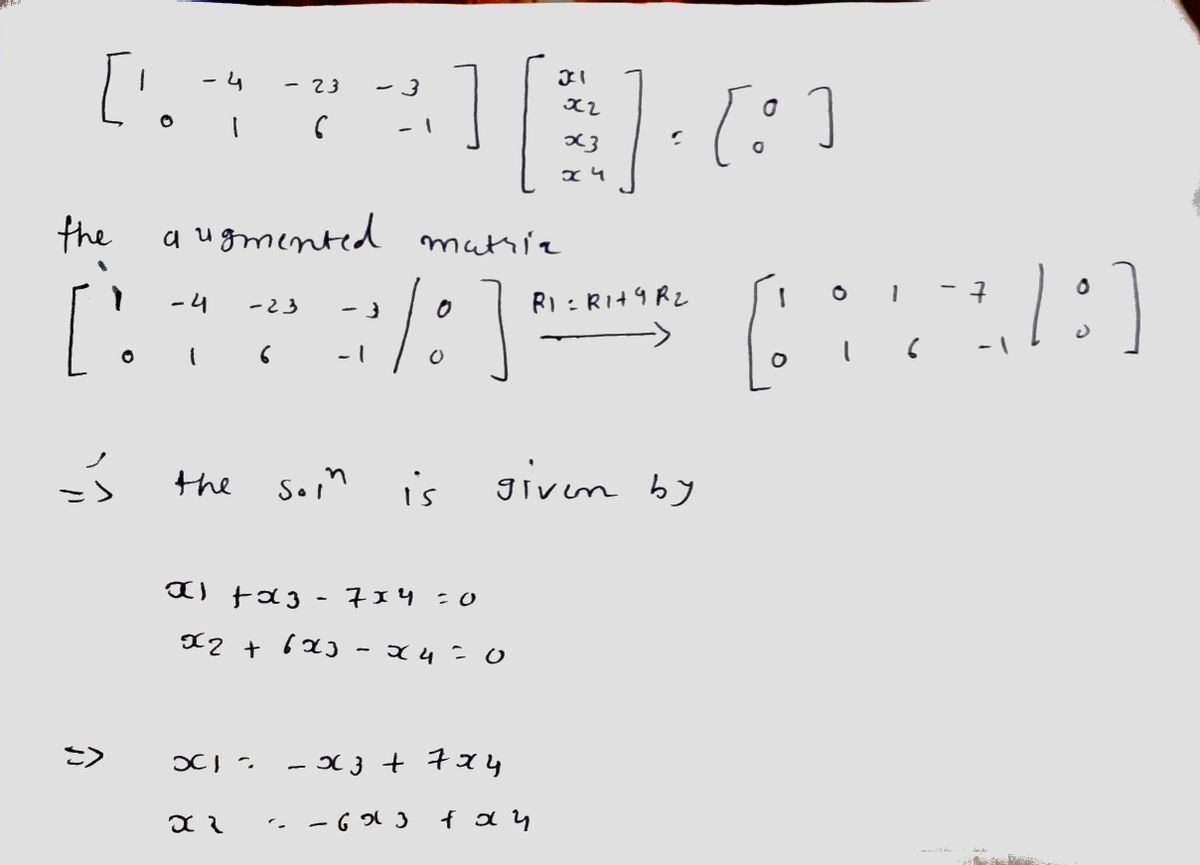 [1 -4 -23 -3] [x1] = [0]
[0 1 6 -1] [x2] [0]
[x3]
[x4]
the augmented matrix
[1 -4 -23 -3 / 0] R1 = R1+4R2 → [1 0 1 -7 | 0]
[0 1 6 -1 / 0] [0 1 6 -1 | 0]
=> the solⁿ is given by
x1 + x3 - 7x4 = 0
x2 + 6x3 - x4 = 0
=> x1 = -x3 + 7x4
x2 = -6x3 + x4